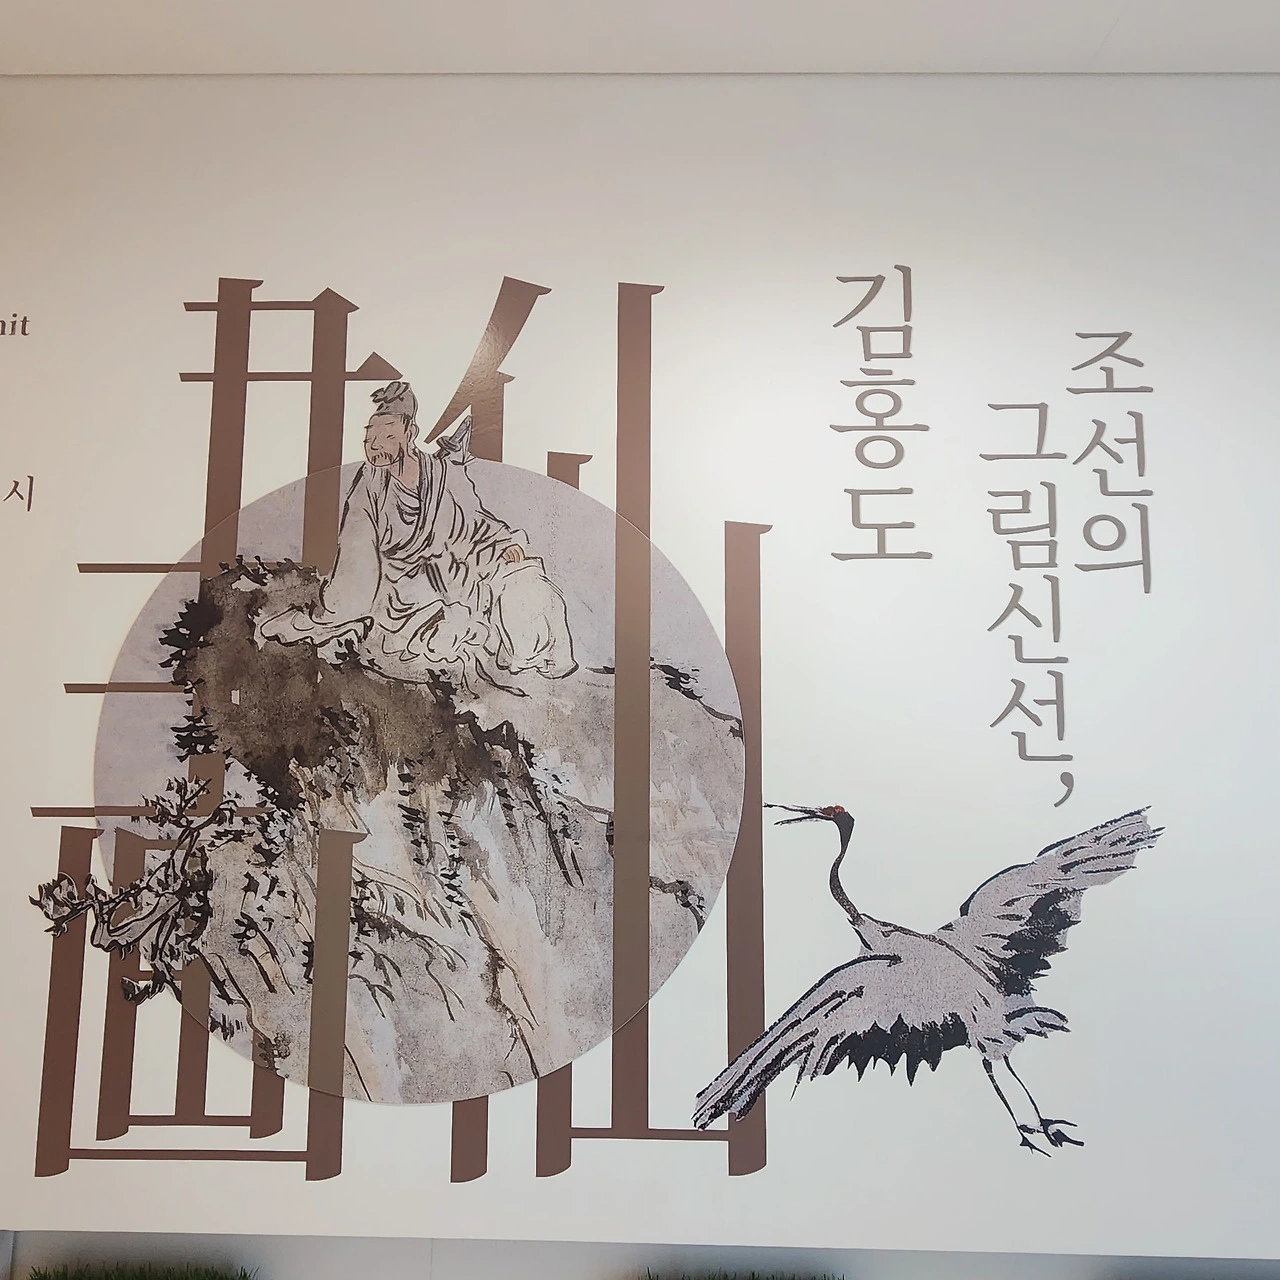 조선의
그림신선,
김홍도
畵仙
시